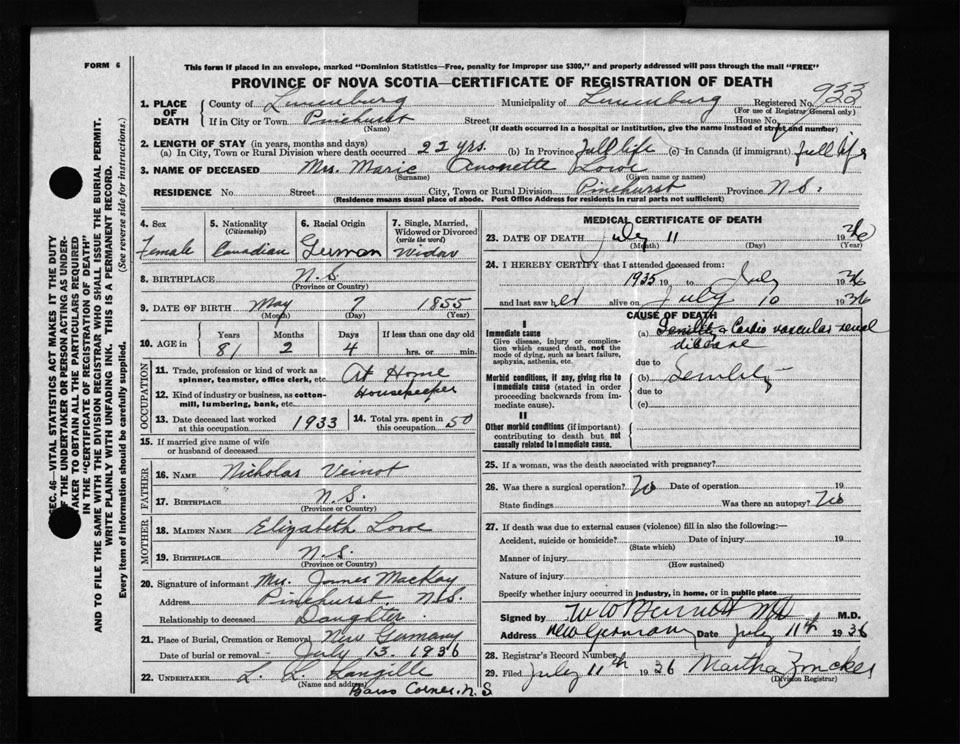 FORM 6
This form if placed in an envelope, marked "Dominion Statistics—Free, penalty for improper use $300," and properly addressed will pass through the mail "FREE"
PROVINCE OF NOVA SCOTIA—CERTIFICATE OF REGISTRATION OF DEATH
933
1. PLACE OF DEATH { County of Lunenburg Municipality of Lunenburg Registered No.
(For use of Registrar General only)
If in City or Town Pinehurst Street House No.
(Name) (If death occurred in a hospital or institution, give the name instead of street and number)
2. LENGTH OF STAY (in years, months and days)
(a) In City, Town or Rural Division where death occurred 22 yrs. (b) In Province full life (c) In Canada (if immigrant) full life
3. NAME OF DECEASED Mrs. Marie Lowe
(Surname) (Given name or names)
RESIDENCE No. Street City, Town or Rural Division Pinehurst Province N.S.
(Residence means usual place of abode. Post Office Address for residents in rural parts not sufficient)
4. Sex
Female
5. Nationality
(Citizenship)
Canadian
6. Racial Origin
German
7. Single, Married, Widowed or Divorced
(write the word)
Widow
8. BIRTHPLACE N.S.
(Province or Country)
9. DATE OF BIRTH May 7 1855
(Month) (Day) (Year)
10. AGE in Years Months Days If less than one day old
81 2 4 hrs. or min.
OCCUPATION
11. Trade, profession or kind of work as spinner, teamster, office clerk, etc. At Home
12. Kind of industry or business, as cotton-mill, lumbering, bank, etc. Housekeeper
13. Date deceased last worked at this occupation 1933
14. Total yrs. spent in this occupation 50
15. If married give name of wife or husband of deceased
FATHER
16. NAME Nicholas Veinot
17. BIRTHPLACE N.S.
(Province or Country)
MOTHER
18. MAIDEN NAME Elizabeth Lowe
19. BIRTHPLACE N.S.
(Province or Country)
20. Signature of informant Mrs. James MacKay
Address Pinehurst N.S.
Relationship to deceased Daughter
21. Place of Burial, Cremation or Removal New Germany
Date of burial or removal July 13. 1936
22. UNDERTAKER L. L. Langille
(Name and address)
Barss Corner, N.S.
MEDICAL CERTIFICATE OF DEATH
23. DATE OF DEATH July 11 1936
(Month) (Day) (Year)
24. I HEREBY CERTIFY that I attended deceased from:
1935 19 to July 1936
and last saw her alive on July 10 1936
CAUSE OF DEATH
I
Immediate cause
Give disease, injury or complication which caused death, not the mode of dying, such as heart failure, asphyxia, asthenia, etc.
(a) Senility & Cardio vascular-renal disease
due to
Morbid conditions, if any, giving rise to immediate cause (stated in order proceeding backwards from immediate cause).
(b) Senility
due to
(c)
II
Other morbid conditions (if important) contributing to death but not causally related to immediate cause.
25. If a woman, was the death associated with pregnancy?
26. Was there a surgical operation? No Date of operation 19
State findings Was there an autopsy? No
27. If death was due to external causes (violence) fill in also the following:—
Accident, suicide or homicide? Date of injury 19
(State which)
Manner of injury
(How sustained)
Nature of injury
Specify whether injury occurred in industry, in home, or in public place
Signed by M.D. M.D.
Address New Germany Date July 11th 1936
28. Registrar's Record Number
29. Filed July 11th 1936 Martha Zwicker
(Division Registrar)
SEC. 46—VITAL STATISTICS ACT MAKES IT THE DUTY
OF THE UNDERTAKER OR PERSON ACTING AS UNDERTAKER TO OBTAIN ALL THE PARTICULARS REQUIRED
IN THE "CERTIFICATE OF REGISTRATION OF DEATH"
AND TO FILE THE SAME WITH THE DIVISION REGISTRAR WHO SHALL ISSUE THE BURIAL PERMIT.
WRITE PLAINLY WITH UNFADING INK. THIS IS A PERMANENT RECORD.
Every item of information should be carefully supplied. (See reverse side for instructions.)